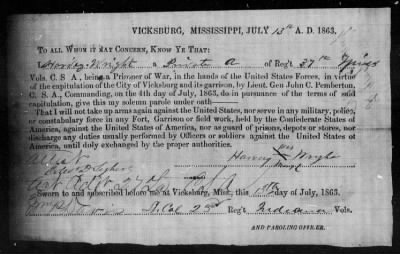 VICKSBURG, MISSISSIPPI, JULY 13th A. D. 1863.
TO ALL WHOM IT MAY CONCERN, KNOW YE THAT:
I Harvey Wright a Private A of Reg't 37th
Vols. C. S. A., being a Prisoner of War, in the hands of the United States Forces, in virtue
of the capitulation of the City of Vicksburg and its garrison, by Lieut. Gen John C. Pemberton,
C. S. A., Commanding, on the 4th day of July, 1863, do in pursuance of the terms of said
capitulation, give this my solemn parole under oath—
That I will not take up arms again against the United States, nor serve in any military, police,
or constabulary force in any Fort, Garrison or field work, held by the Confederate States of
America, against the United States of America, nor as guard of prisons, depots or stores, nor
discharge any duties usually performed by Officers or soldiers against the United States of
America, until duly exchanged by the proper authorities.
Harvey his Wright
mark
Sworn to and subscribed before me at Vicksburg, Miss., this 13th day of July, 1863.
Lt. Col 23d Reg't Indiana Vols.
AND PAROLING OFFICER.